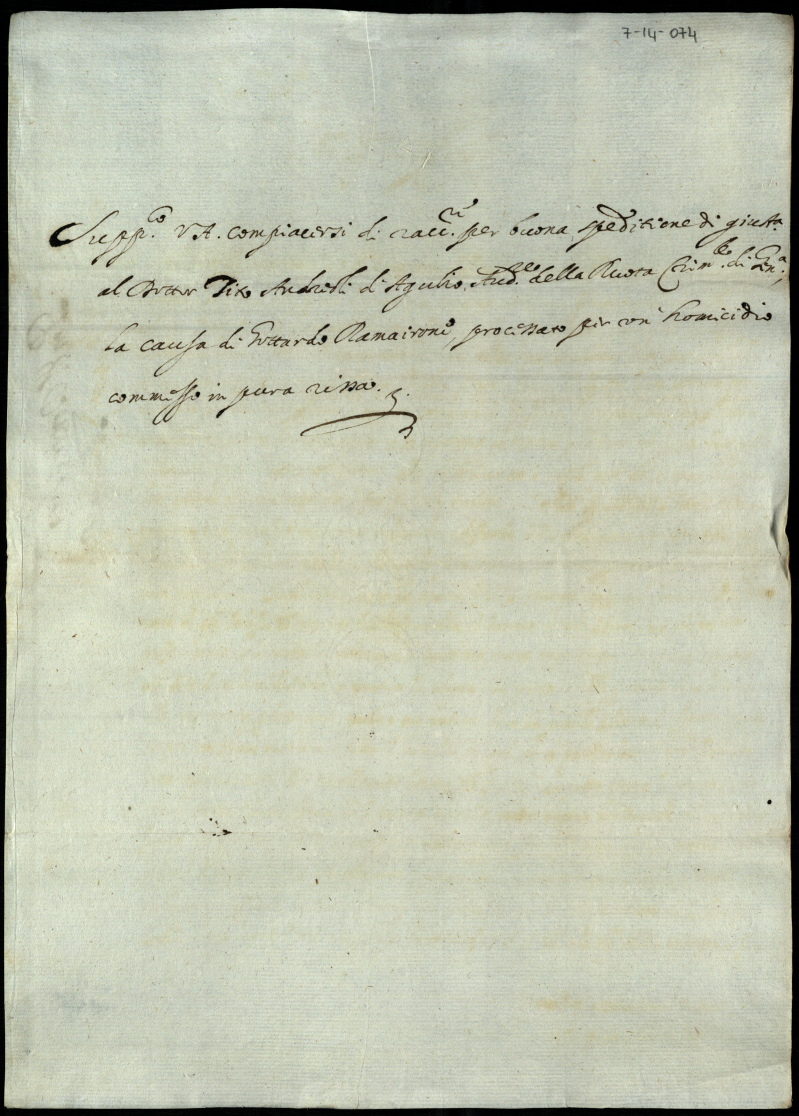 7-14-074
Supp.co V.A. compiacersi di racc.re per buona speditione di giust.a
al Dottor Tito Andreoli di Agulio, Aud.re della Ruota Crim.le di Gen.a,
la causa di Gottardo Ramaironi, processato per un homicidio
commesso in pura rissa.